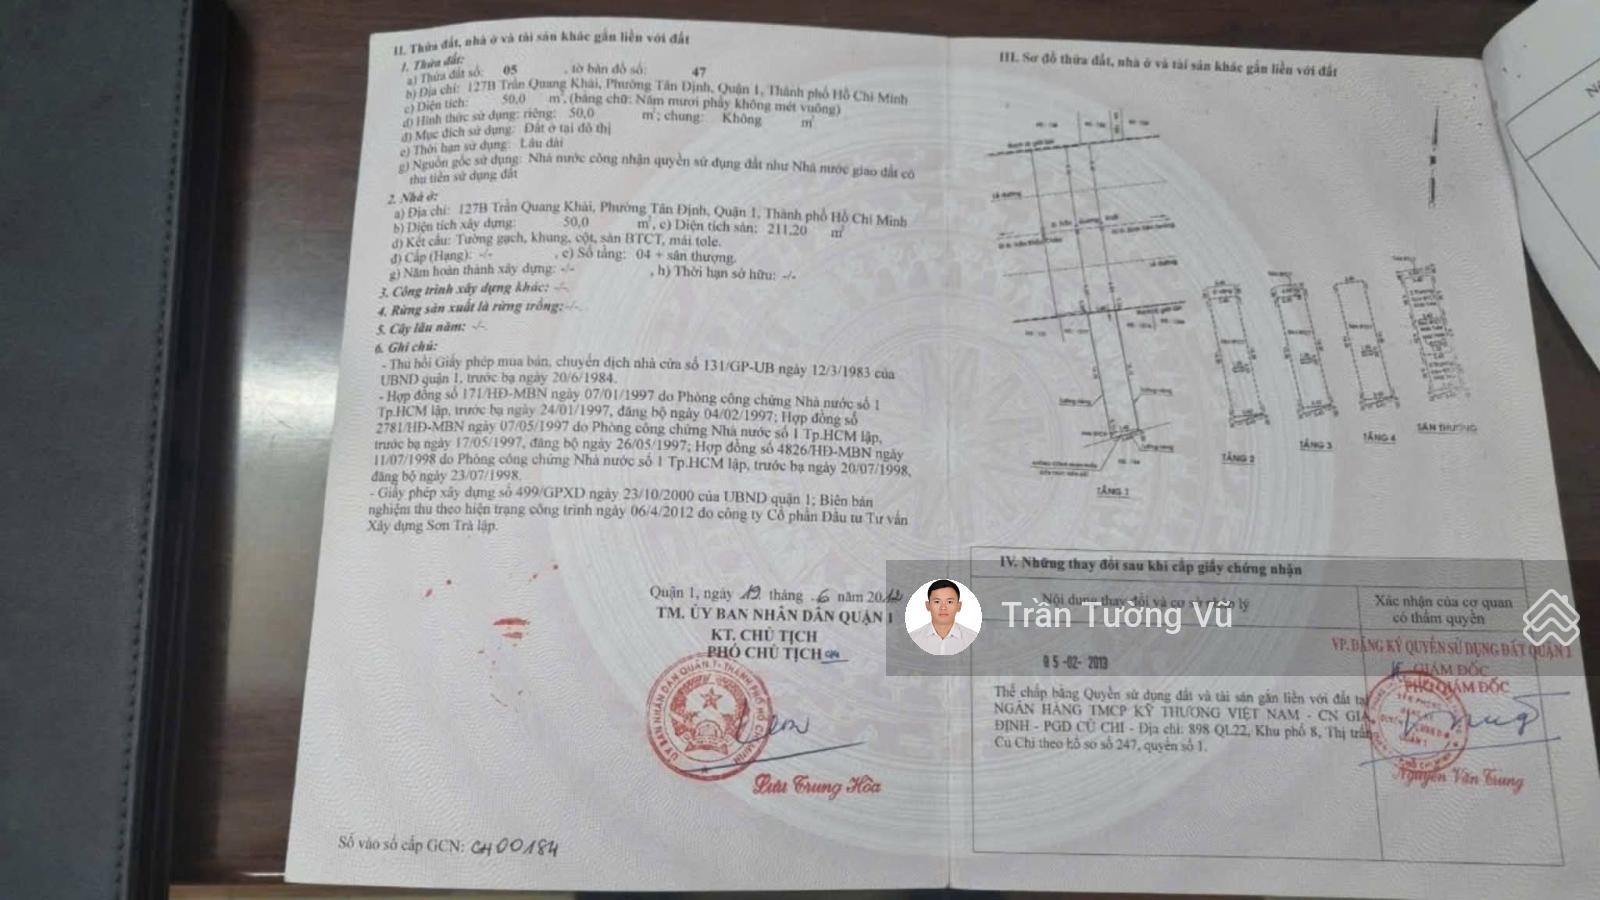 II. Thửa đất, nhà ở và tài sản khác gắn liền với đất
1. Thửa đất:
a) Thửa đất số: 05 , tờ bản đồ số: 47
b) Địa chỉ: 127B Trần Quang Khải, Phường Tân Định, Quận 1, Thành phố Hồ Chí Minh
c) Diện tích: 50,0 m², (bằng chữ: Năm mươi phẩy không mét vuông)
d) Hình thức sử dụng: riêng: 50,0 m²; chung: Không m²
đ) Mục đích sử dụng: Đất ở tại đô thị
e) Thời hạn sử dụng: Lâu dài
g) Nguồn gốc sử dụng: Nhà nước công nhận quyền sử dụng đất như Nhà nước giao đất có
thu tiền sử dụng đất
2. Nhà ở:
a) Địa chỉ: 127B Trần Quang Khải, Phường Tân Định, Quận 1, Thành phố Hồ Chí Minh
b) Diện tích xây dựng: 50,0 m², c) Diện tích sàn: 211,20 m²
d) Kết cấu: Tường gạch, khung, cột, sàn BTCT, mái tole.
đ) Cấp (Hạng): -/- , e) Số tầng: 04 + sân thượng.
g) Năm hoàn thành xây dựng: -/- , h) Thời hạn sở hữu: -/-
3. Công trình xây dựng khác: -/-
4. Rừng sản xuất là rừng trồng:-/-
5. Cây lâu năm: -/-
6. Ghi chú:
- Thu hồi Giấy phép mua bán, chuyển dịch nhà cửa số 131/GP-UB ngày 12/3/1983 của
UBND quận 1, trước bạ ngày 20/6/1984.
- Hợp đồng số 171/HĐ-MBN ngày 07/01/1997 do Phòng công chứng Nhà nước số 1
Tp.HCM lập, trước bạ ngày 24/01/1997, đăng bộ ngày 04/02/1997; Hợp đồng số
2781/HĐ-MBN ngày 07/05/1997 do Phòng công chứng Nhà nước số 1 Tp.HCM lập,
trước bạ ngày 17/05/1997, đăng bộ ngày 26/05/1997; Hợp đồng số 4826/HĐ-MBN ngày
11/07/1998 do Phòng công chứng Nhà nước số 1 Tp.HCM lập, trước bạ ngày 20/07/1998,
đăng bộ ngày 23/07/1998.
- Giấy phép xây dựng số 499/GPXD ngày 23/10/2000 của UBND quận 1; Biên bản
nghiệm thu theo hiện trạng công trình ngày 06/4/2012 do công ty Cổ phần Đầu tư Tư vấn
Xây dựng Sơn Trà lập.
Quận 1, ngày 19 tháng 6 năm 2012
TM. ỦY BAN NHÂN DÂN QUẬN 1
KT. CHỦ TỊCH
PHÓ CHỦ TỊCH
ỦY BAN NHÂN DÂN QUẬN 1 - THÀNH PHỐ HỒ CHÍ MINH
Lưu Trung Hòa
Số vào sổ cấp GCN: CH00184
III. Sơ đồ thửa đất, nhà ở và tài sản khác gắn liền với đất
TẦNG 1
TẦNG 2
TẦNG 3
TẦNG 4
SÂN THƯỢNG
IV. Những thay đổi sau khi cấp giấy chứng nhận
Nội dung thay đổi và cơ sở pháp lý
Xác nhận của cơ quan
có thẩm quyền
Trần Tường Vũ
05-02-2013
Thế chấp bằng Quyền sử dụng đất và tài sản gắn liền với đất tại
NGÂN HÀNG TMCP KỸ THƯƠNG VIỆT NAM - CN GIA
ĐỊNH - PGD CỦ CHI - Địa chỉ: 898 QL22, Khu phố 8, Thị trấn
Củ Chi theo hồ sơ số 247, quyển số 1.
VP. ĐĂNG KÝ QUYỀN SỬ DỤNG ĐẤT QUẬN 1
GIÁM ĐỐC
PHÓ GIÁM ĐỐC
Nguyễn Văn Trung